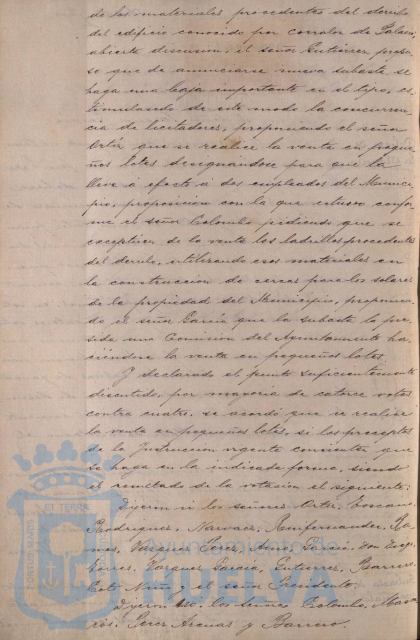 de los materiales procedentes del derribo
del edificio conocido por corralon de Palacio,
abierta discusion, el señor Gutierrez propu-
so que de anunciarse nueva subasta se
haga una baja importante en el tipo, es-
timulando de este modo la concurren-
cia de licitadores, proponiendo el señor
Ortiz que se realice la venta en peque-
ños lotes designándose para que la
lleve a efecto á dos empleados del Munici-
pio, proposicion con la que estuvo confor-
me el señor Colombo pidiendo que se
exceptúen de la venta los ladrillos procedentes
del derribo, utilizando esos materiales en
la construccion de cercas para los solares
de la propiedad del Municipio, proponien-
do el señor Garcia que la subasta la pre-
sida una Comision del Ayuntamiento ha-
ciéndose la venta en pequeños lotes.
Y declarado el punto suficientemente
discutido, por mayoria de catorce votos
contra cuatro, se acordó que se realice
la venta en pequeños lotes, si los preceptos
de la Instruccion vigente consienten que
se haga en la indicada forma, siendo
el resultado de la votacion el siguiente:
Dijeron si los señores Ortiz, Toscano,
Rodriguez, Narvaez,
Vazquez Perez,
Vazquez Garcia, Gutierrez, Barrera,
Coto, Niño y el señor Presidente.
Dijeron No: los señores Colombo,
Perez Arenas y Barrero.
EL TERRÆ
PORTUS MARIS
Ayuntamiento de
HUELVA